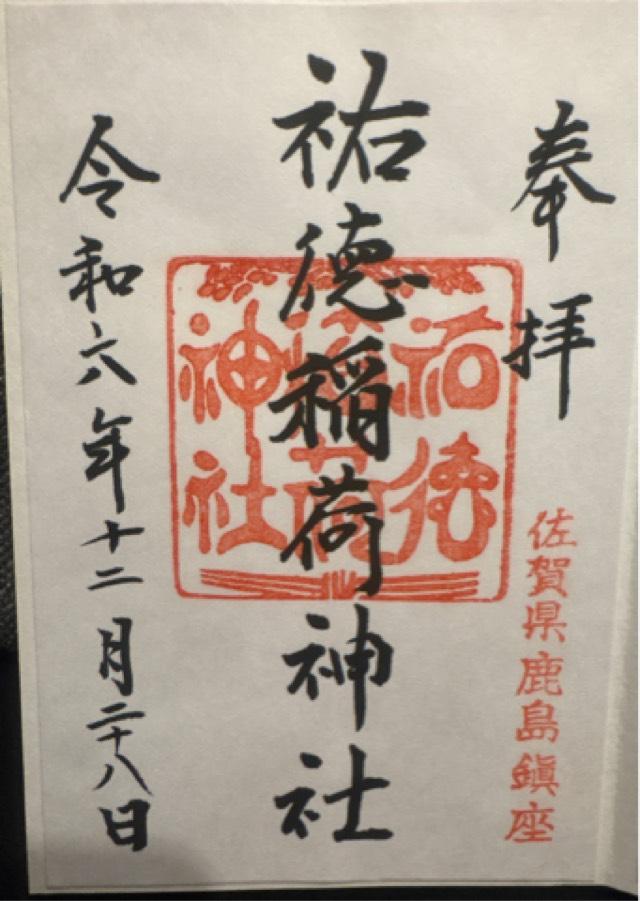 奉拝
佐賀県鹿島鎮座
祐徳稲荷神社
祐徳
稲荷
神社
令和六年十二月二十八日